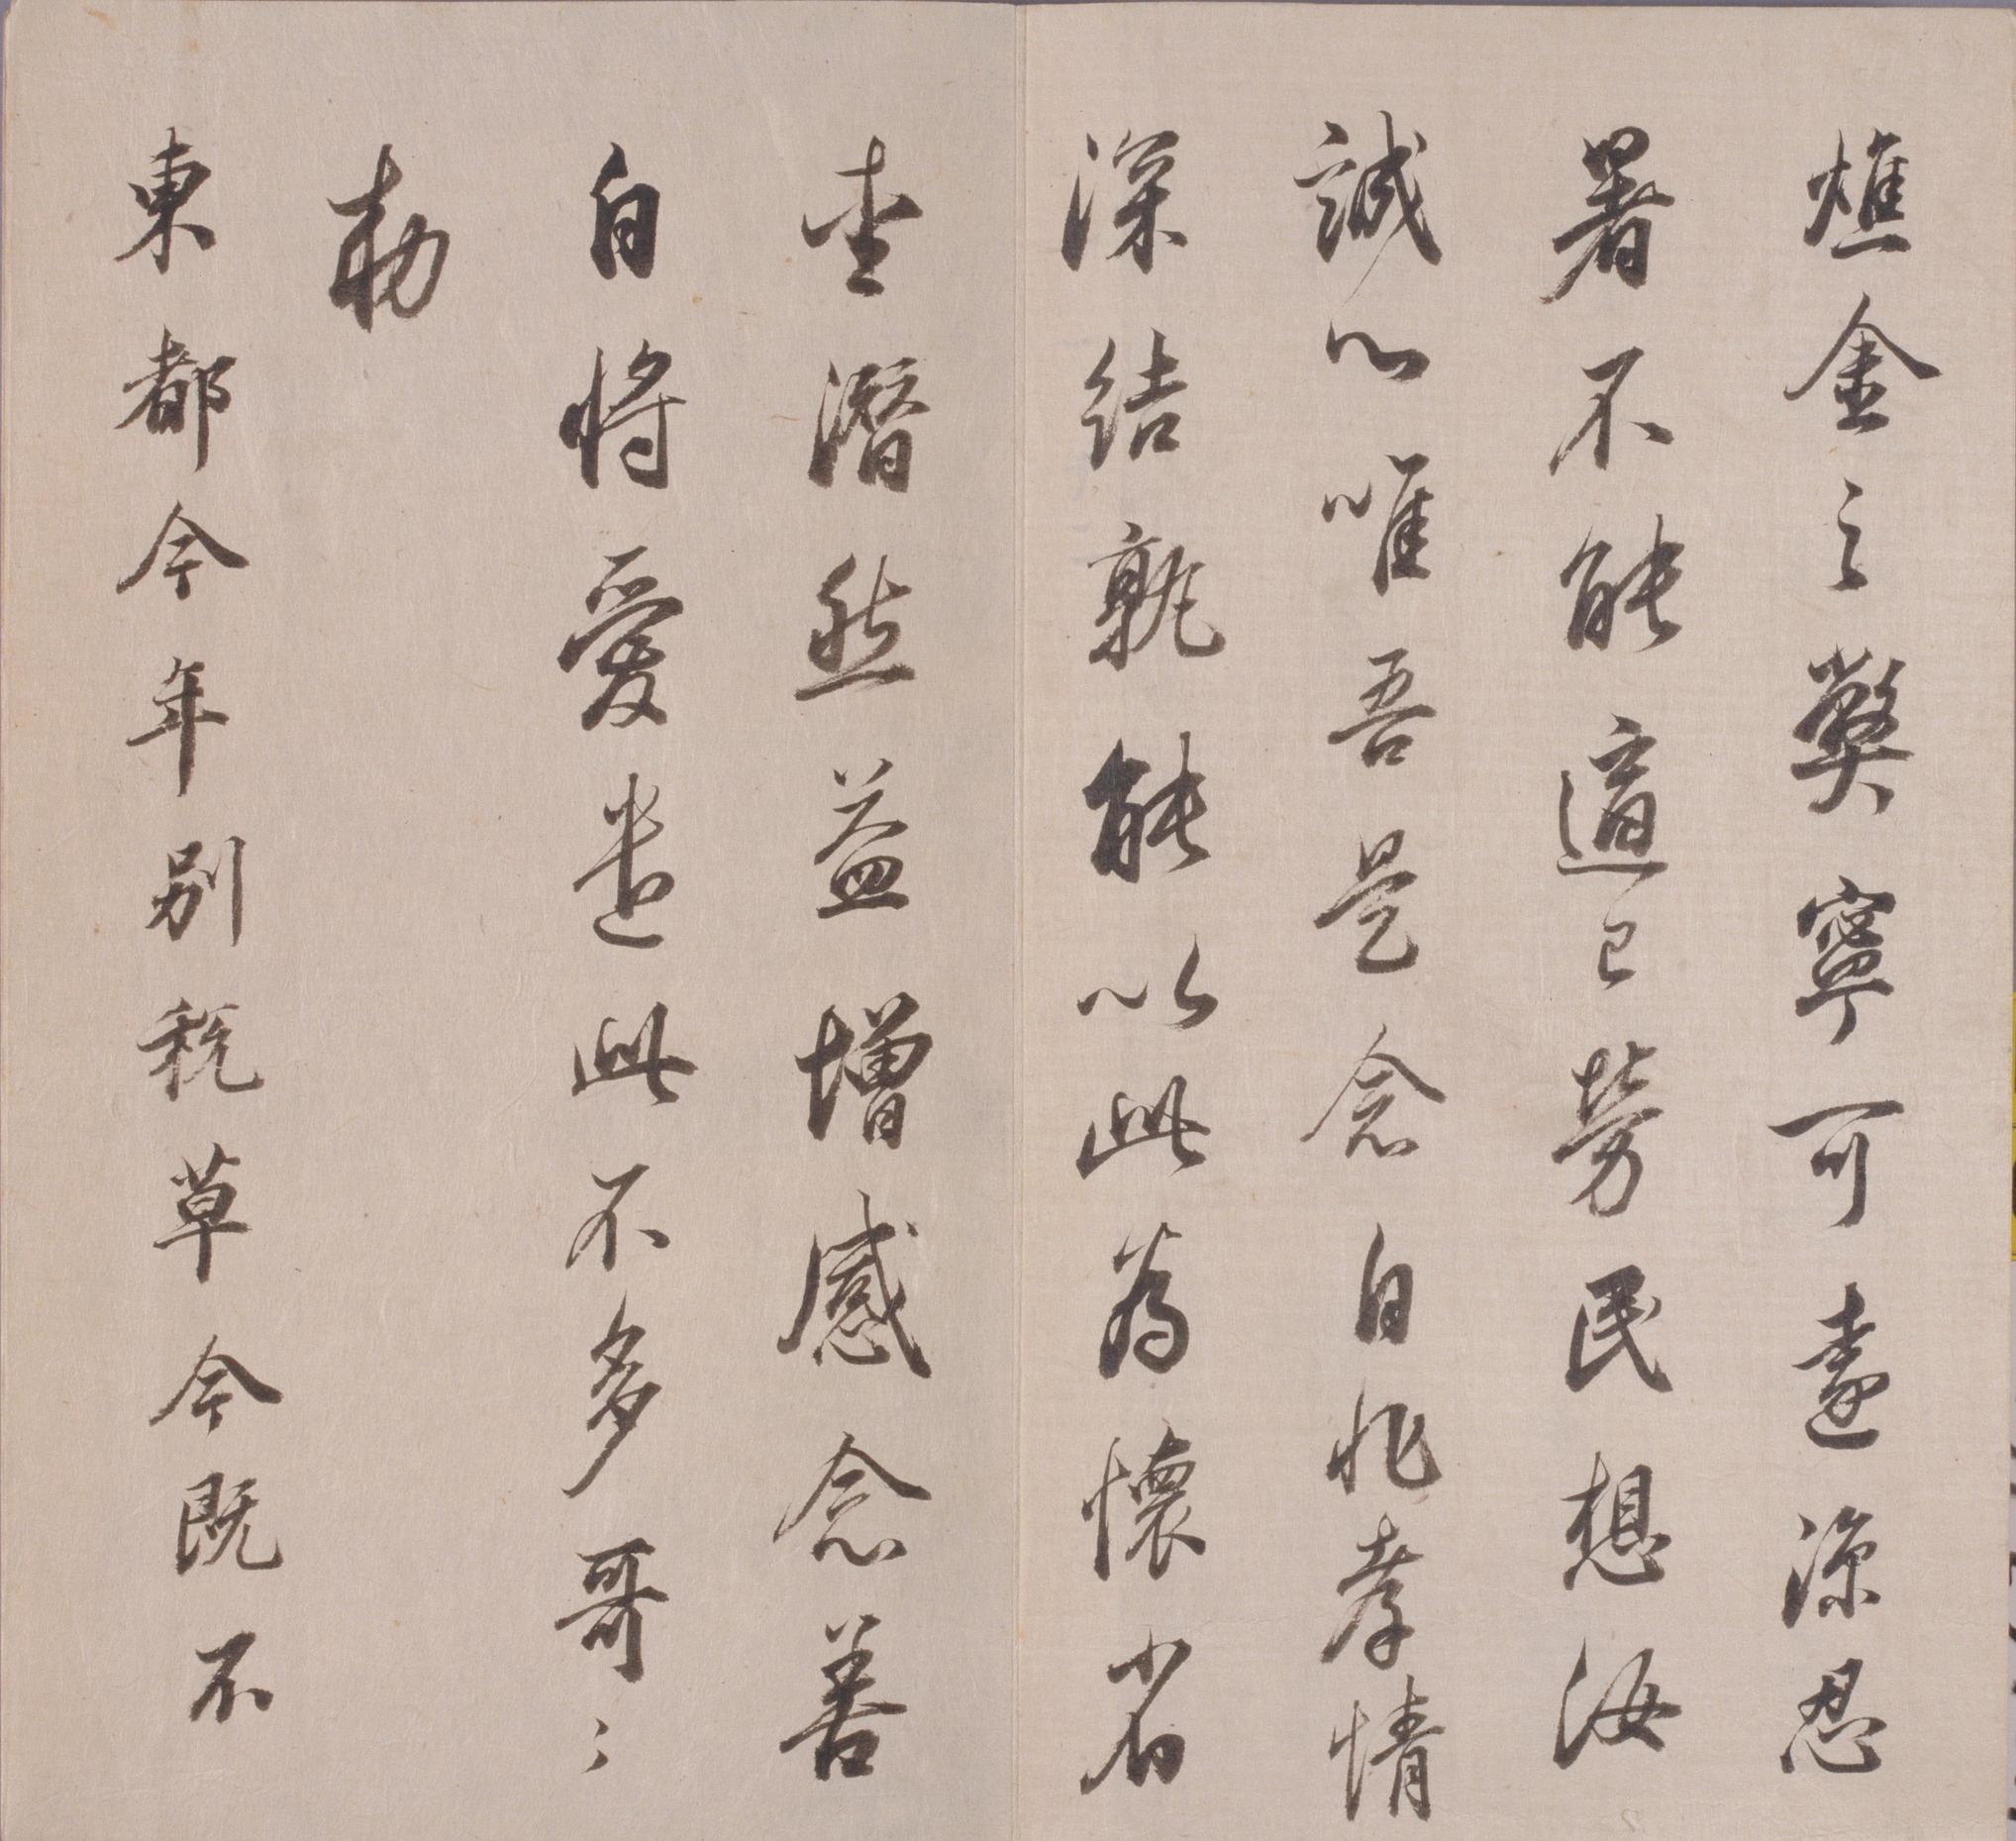 燋金之獘寧可違涼忍
暑不能適已勞民想汝
誠心唯吾是念自非孝情
深結孰能以此為懷省
書潛然益增感念善
自將愛遣此不多哥〻
敕
東都今年別稅草今既不